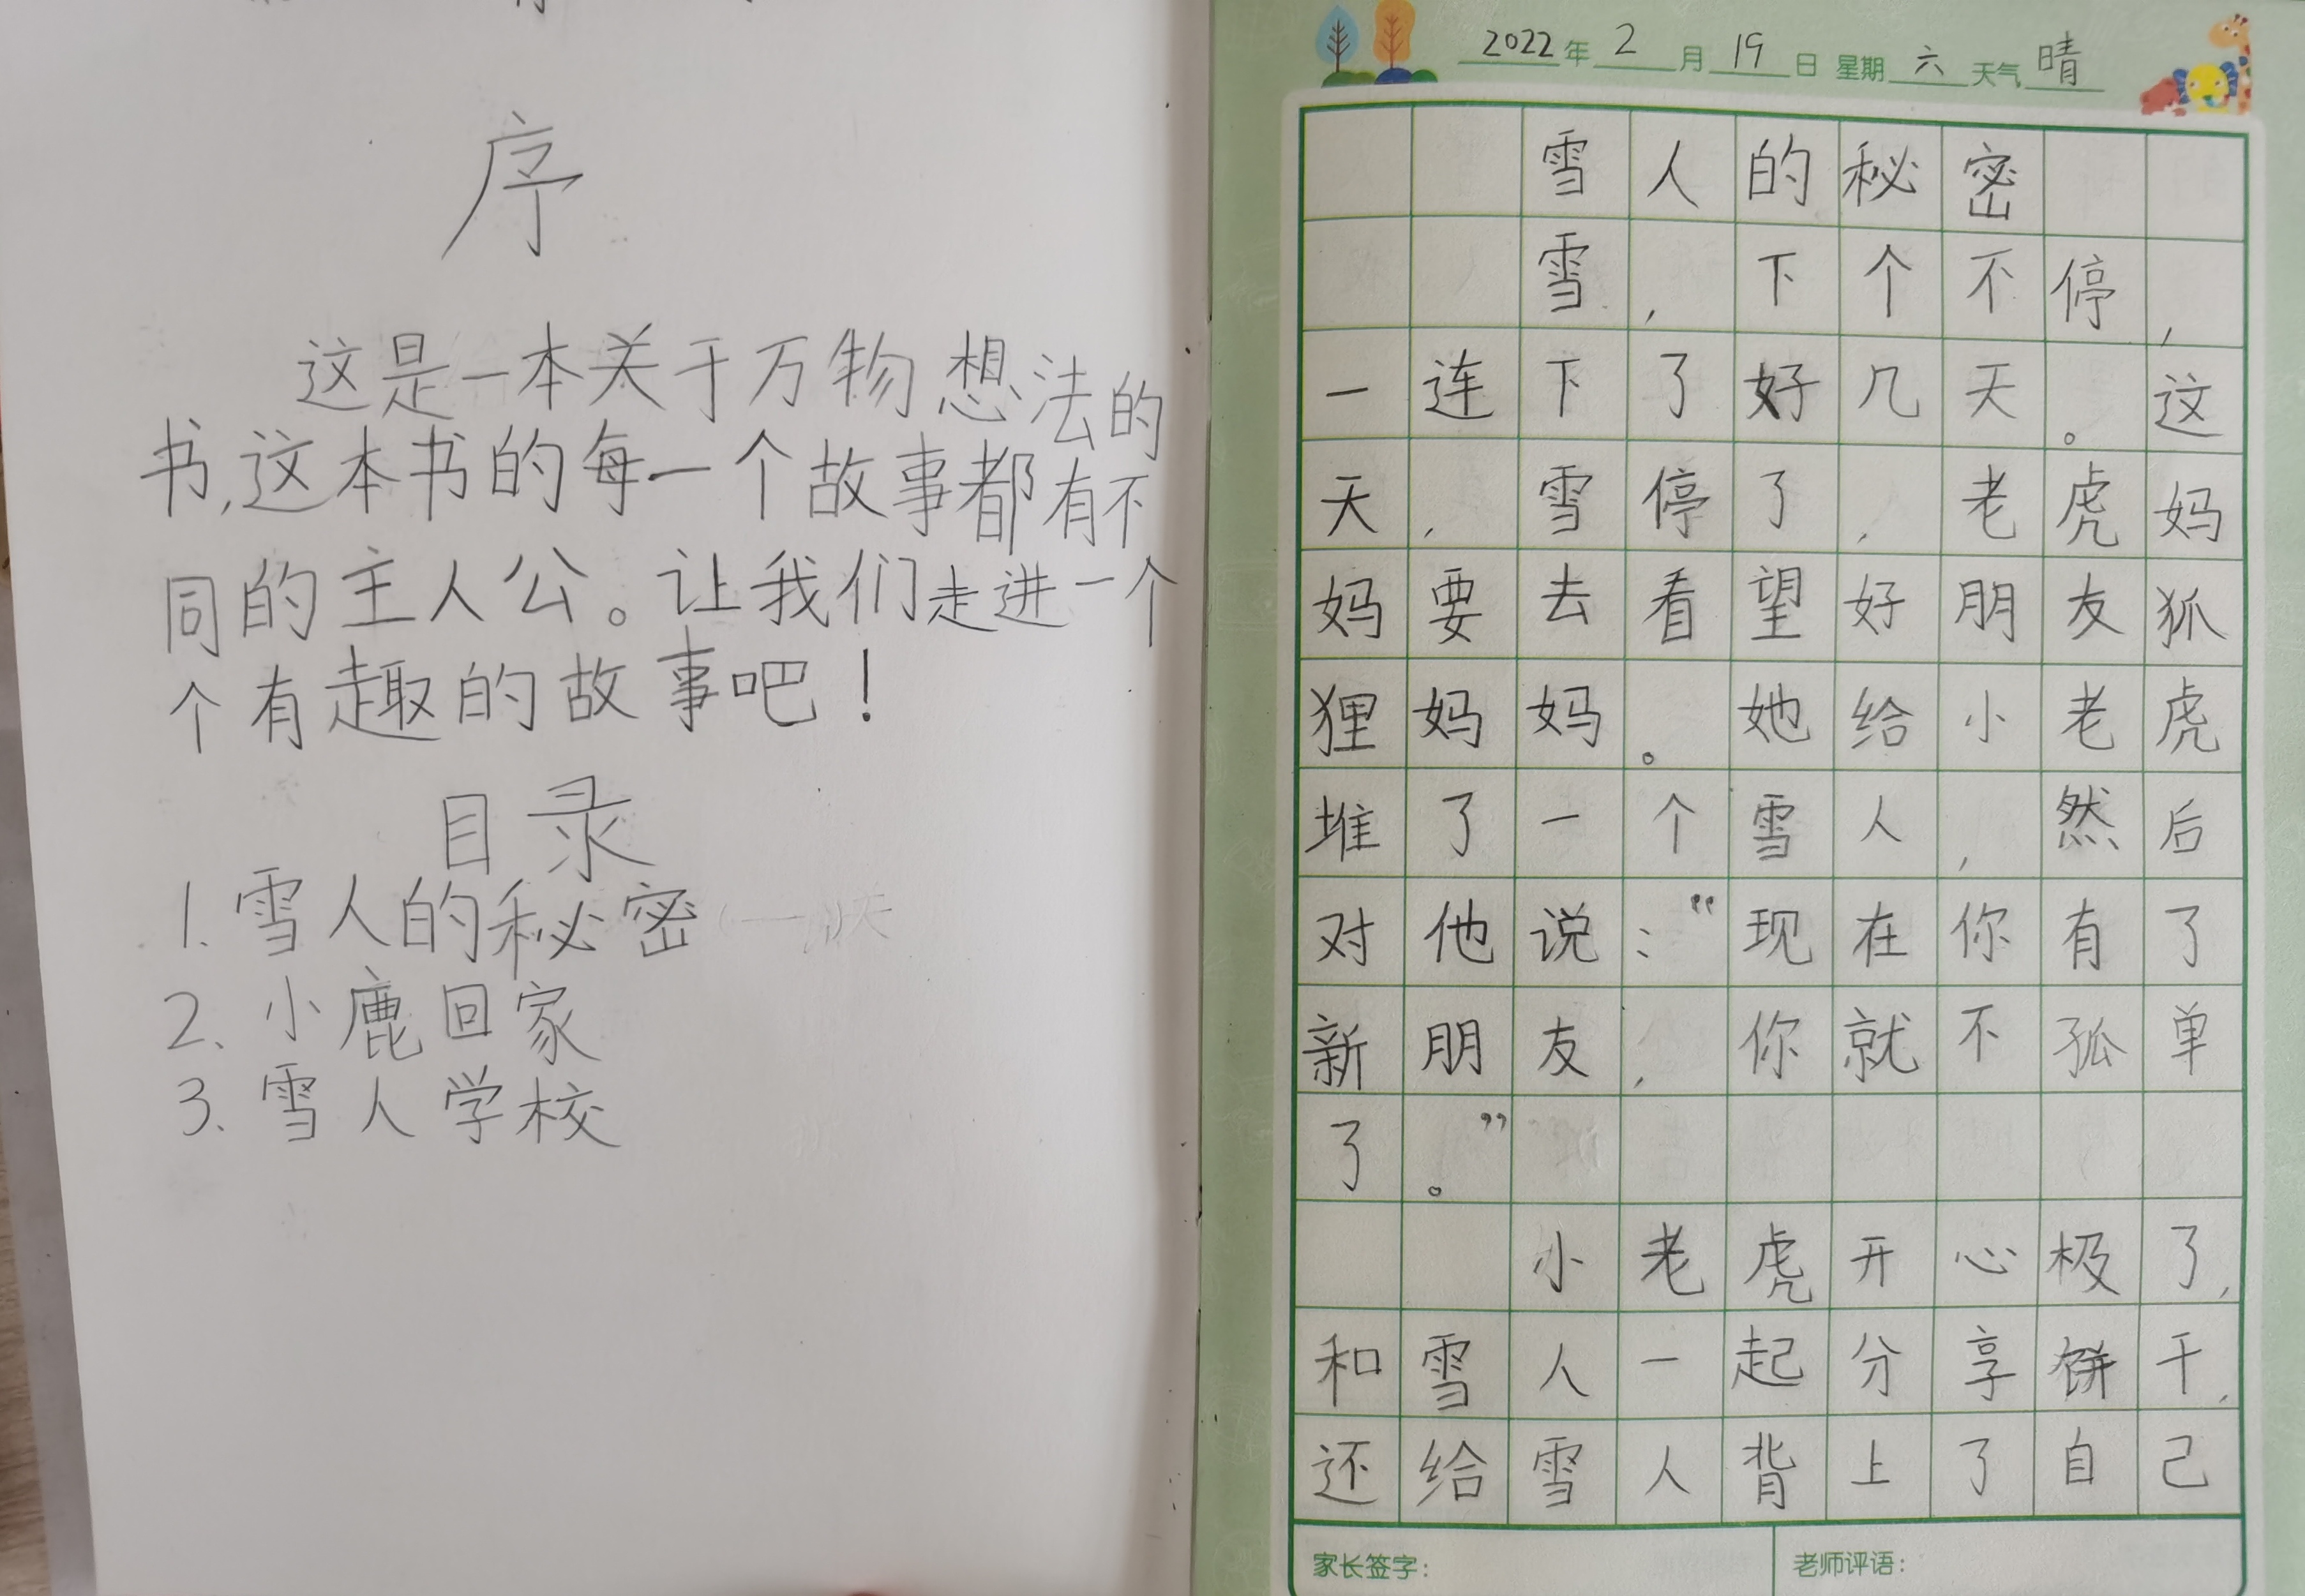 序
这是一本关于万物想法的
书,这本书的每一个故事都有不
同的主人公。让我们走进一个
个有趣的故事吧！
目录
1.雪人的秘密
2.小鹿回家
3.雪人学校
2022年2月19日 星期六 天气晴
雪人的秘密
雪，下个不停，
一连下了好几天。这
天，雪停了，老虎妈
妈要去看望好朋友狐
狸妈妈。她给小老虎
堆了一个雪人，然后
对他说：“现在你有了
新朋友，你就不孤单
了。”
小老虎开心极了，
和雪人一起分享饼干，
还给雪人背上了自己
家长签字：
老师评语：